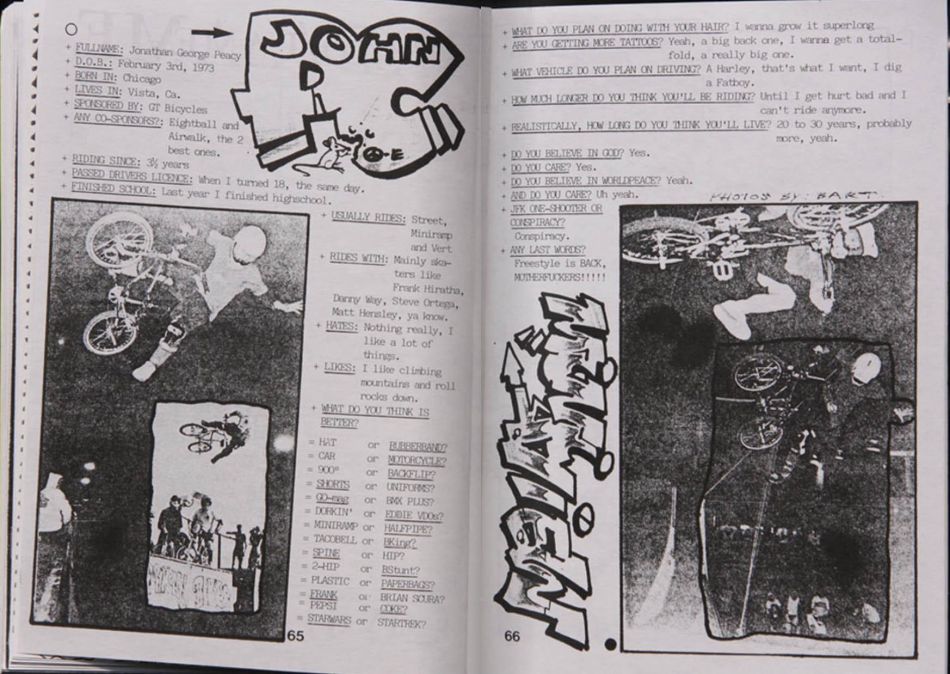 JOHN
+ FULLNAME: Jonathan George Peacy
+ D.O.B.: February 3rd, 1973
+ BORN IN: Chicago
+ LIVES IN: Vista, Ca.
+ SPONSORED BY: GT Bicycles
+ ANY CO-SPONSORS?: Eightball and
Airwalk, the 2
best ones.
+ RIDING SINCE: 3½ years
+ PASSED DRIVERS LICENCE: When I turned 18, the same day.
+ FINISHED SCHOOL: Last year I finished highschool.
+ USUALLY RIDES: Street,
Miniramp
and Vert
+ RIDES WITH: Mainly ska-
ters like
Frank Hiratha,
Danny Way, Steve Ortega,
Matt Hensley, ya know.
+ HATES: Nothing really, I
like a lot of
things.
+ LIKES: I like climbing
mountains and roll
rocks down.
+ WHAT DO YOU THINK IS
BETTER?
= HAT or RUBBERBAND?
= CAR or MOTORCYCLE?
= 900° or BACKFLIP?
= SHORTS or UNIFORMS?
= GO-mag or BMX PLUS?
= DORKIN' or EDDIE VDOs?
= MINIRAMP or HALFPIPE?
= TACOBELL or BKing?
= SPINE or HIP?
= 2-HIP or BStunt?
= PLASTIC or PAPERBAGS?
= FRANK or BRIAN SCURA?
= PEPSI or COKE?
= STARWARS or STARTREK?
65
+ WHAT DO YOU PLAN ON DOING WITH YOUR HAIR? I wanna grow it superlong
+ ARE YOU GETTING MORE TATTOOS? Yeah, a big back one, I wanna get a total-
fold, a really big one.
+ WHAT VEHICLE DO YOU PLAN ON DRIVING? A Harley, that's what I want, I dig
a Fatboy.
+ HOW MUCH LONGER DO YOU THINK YOU'LL BE RIDING? Until I get hurt bad and I
can't ride anymore.
+ REALISTICALLY, HOW LONG DO YOU THINK YOU'LL LIVE? 20 to 30 years, probably
more, yeah.
+ DO YOU BELIEVE IN GOD? Yes.
+ DO YOU CARE? Yes.
+ DO YOU BELIEVE IN WORLDPEACE? Yeah.
+ AND DO YOU CARE? Uh yeah.
+ JFK ONE-SHOOTER OR
CONSPIRACY?
Conspiracy.
+ ANY LAST WORDS?
Freestyle is BACK,
MOTHERFUCKERS!!!!!
PHOTOS BY: BART.
66